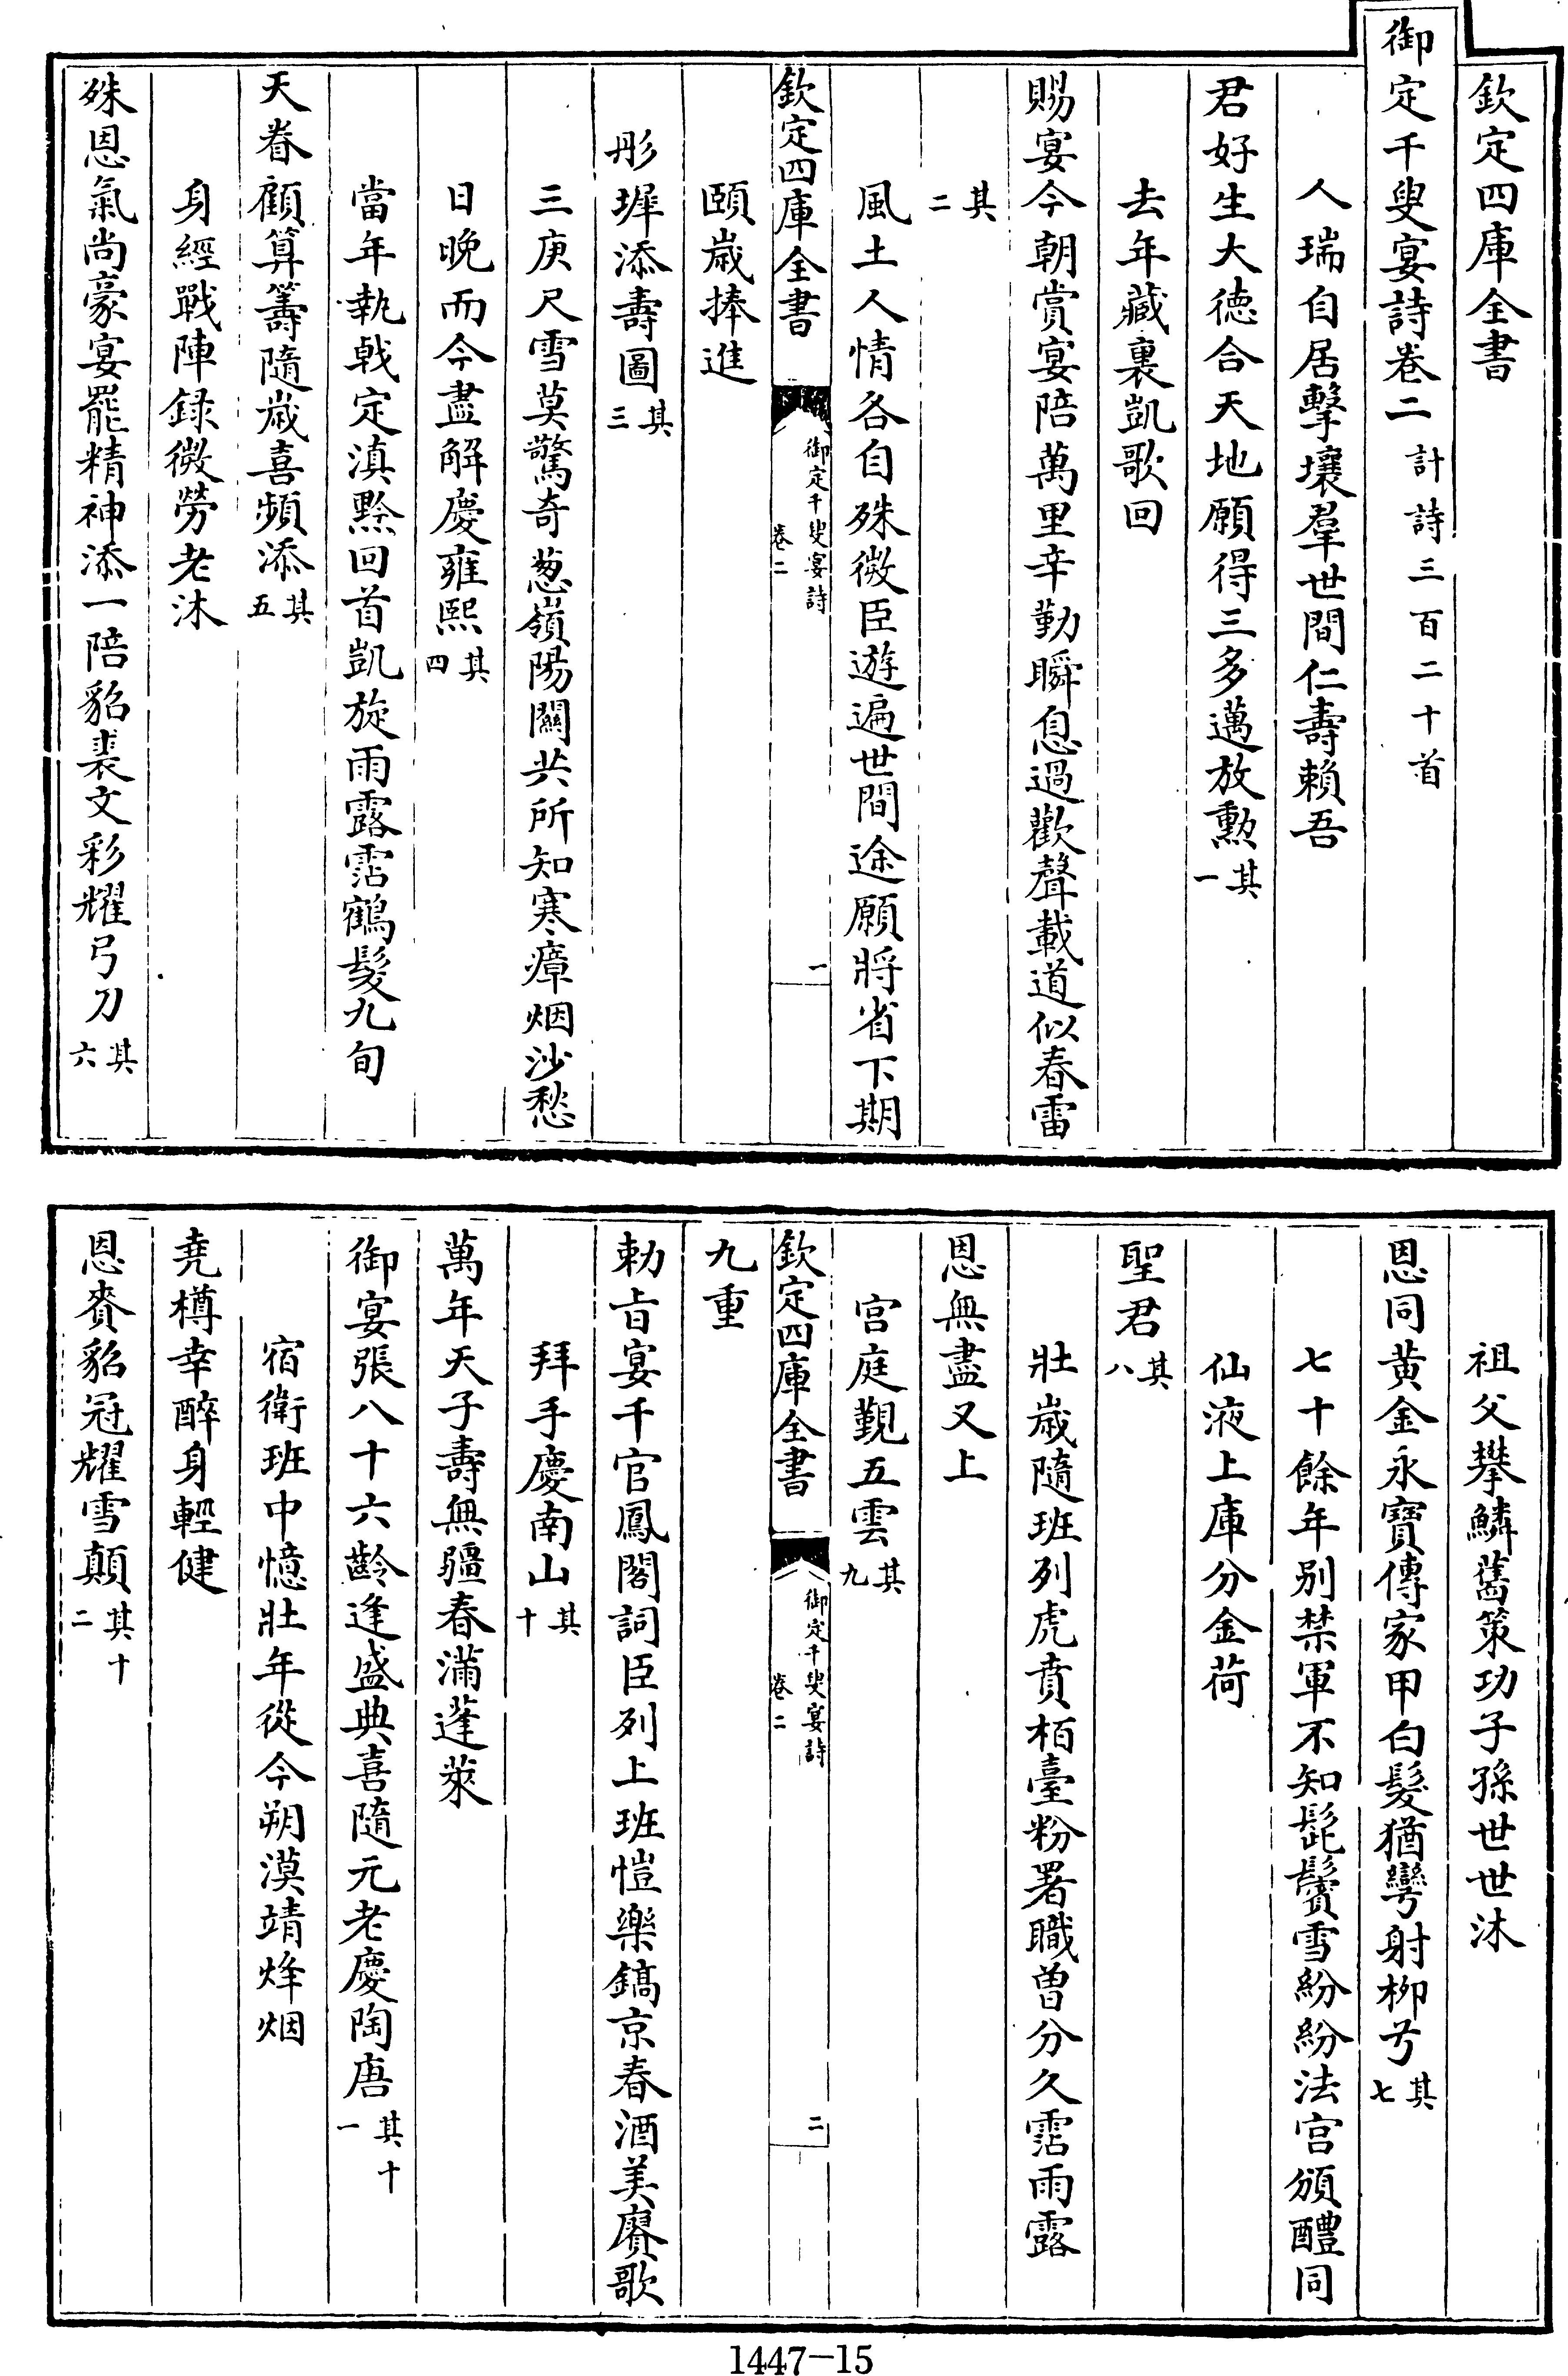 欽定四庫全書
御定千叟宴詩卷二 計詩三百二十首
人瑞自居擊壤羣世間仁壽賴吾
君好生大德合天地願得三多邁放勲 其一
去年藏裏凱歌回
賜宴今朝賞宴陪萬里辛勤瞬息過歡聲載道似春雷
其二
風土人情各自殊微臣遊遍世間途願將省下期
欽定四庫全書 御定千叟宴詩 卷二 一
頤嵗捧進
彤墀添壽圖 其三
三庚尺雪莫驚奇葱嶺陽關共所知寒瘴烟沙愁
日晚而今盡解慶雍熙 其四
當年執戟定滇黔回首凱旋雨露霑鶴髮九旬
天眷顧算籌隨嵗喜頻添 其五
身經戰陣録微勞老沐
殊恩氣尚豪宴罷精神添一陪貂裘文彩耀弓刀 其六
祖父攀鱗舊策功子孫世世沐
恩同黄金永寶傳家甲白髮猶彎射柳弓 其七
七十餘年别禁軍不知髭鬢雪紛紛法宫頒醴同
仙液上庫分金荷
聖君 其八
壯嵗隨班列虎賁栢臺粉署職曽分久霑雨露
恩無盡又上
宫庭覲五雲 其九
欽定四庫全書 御定千叟宴詩 卷二 二
九重
勅旨宴千官鳳閣詞臣列上班愷樂鎬京春酒美賡歌
拜手慶南山 其十
萬年天子壽無疆春滿蓬萊
御宴張八十六齡逢盛典喜隨元老慶陶唐 其十一
宿衛班中憶壯年從今朔漠靖烽烟
堯樽幸醉身輕健
恩賚貂冠耀雪顛 其十二
1447—15